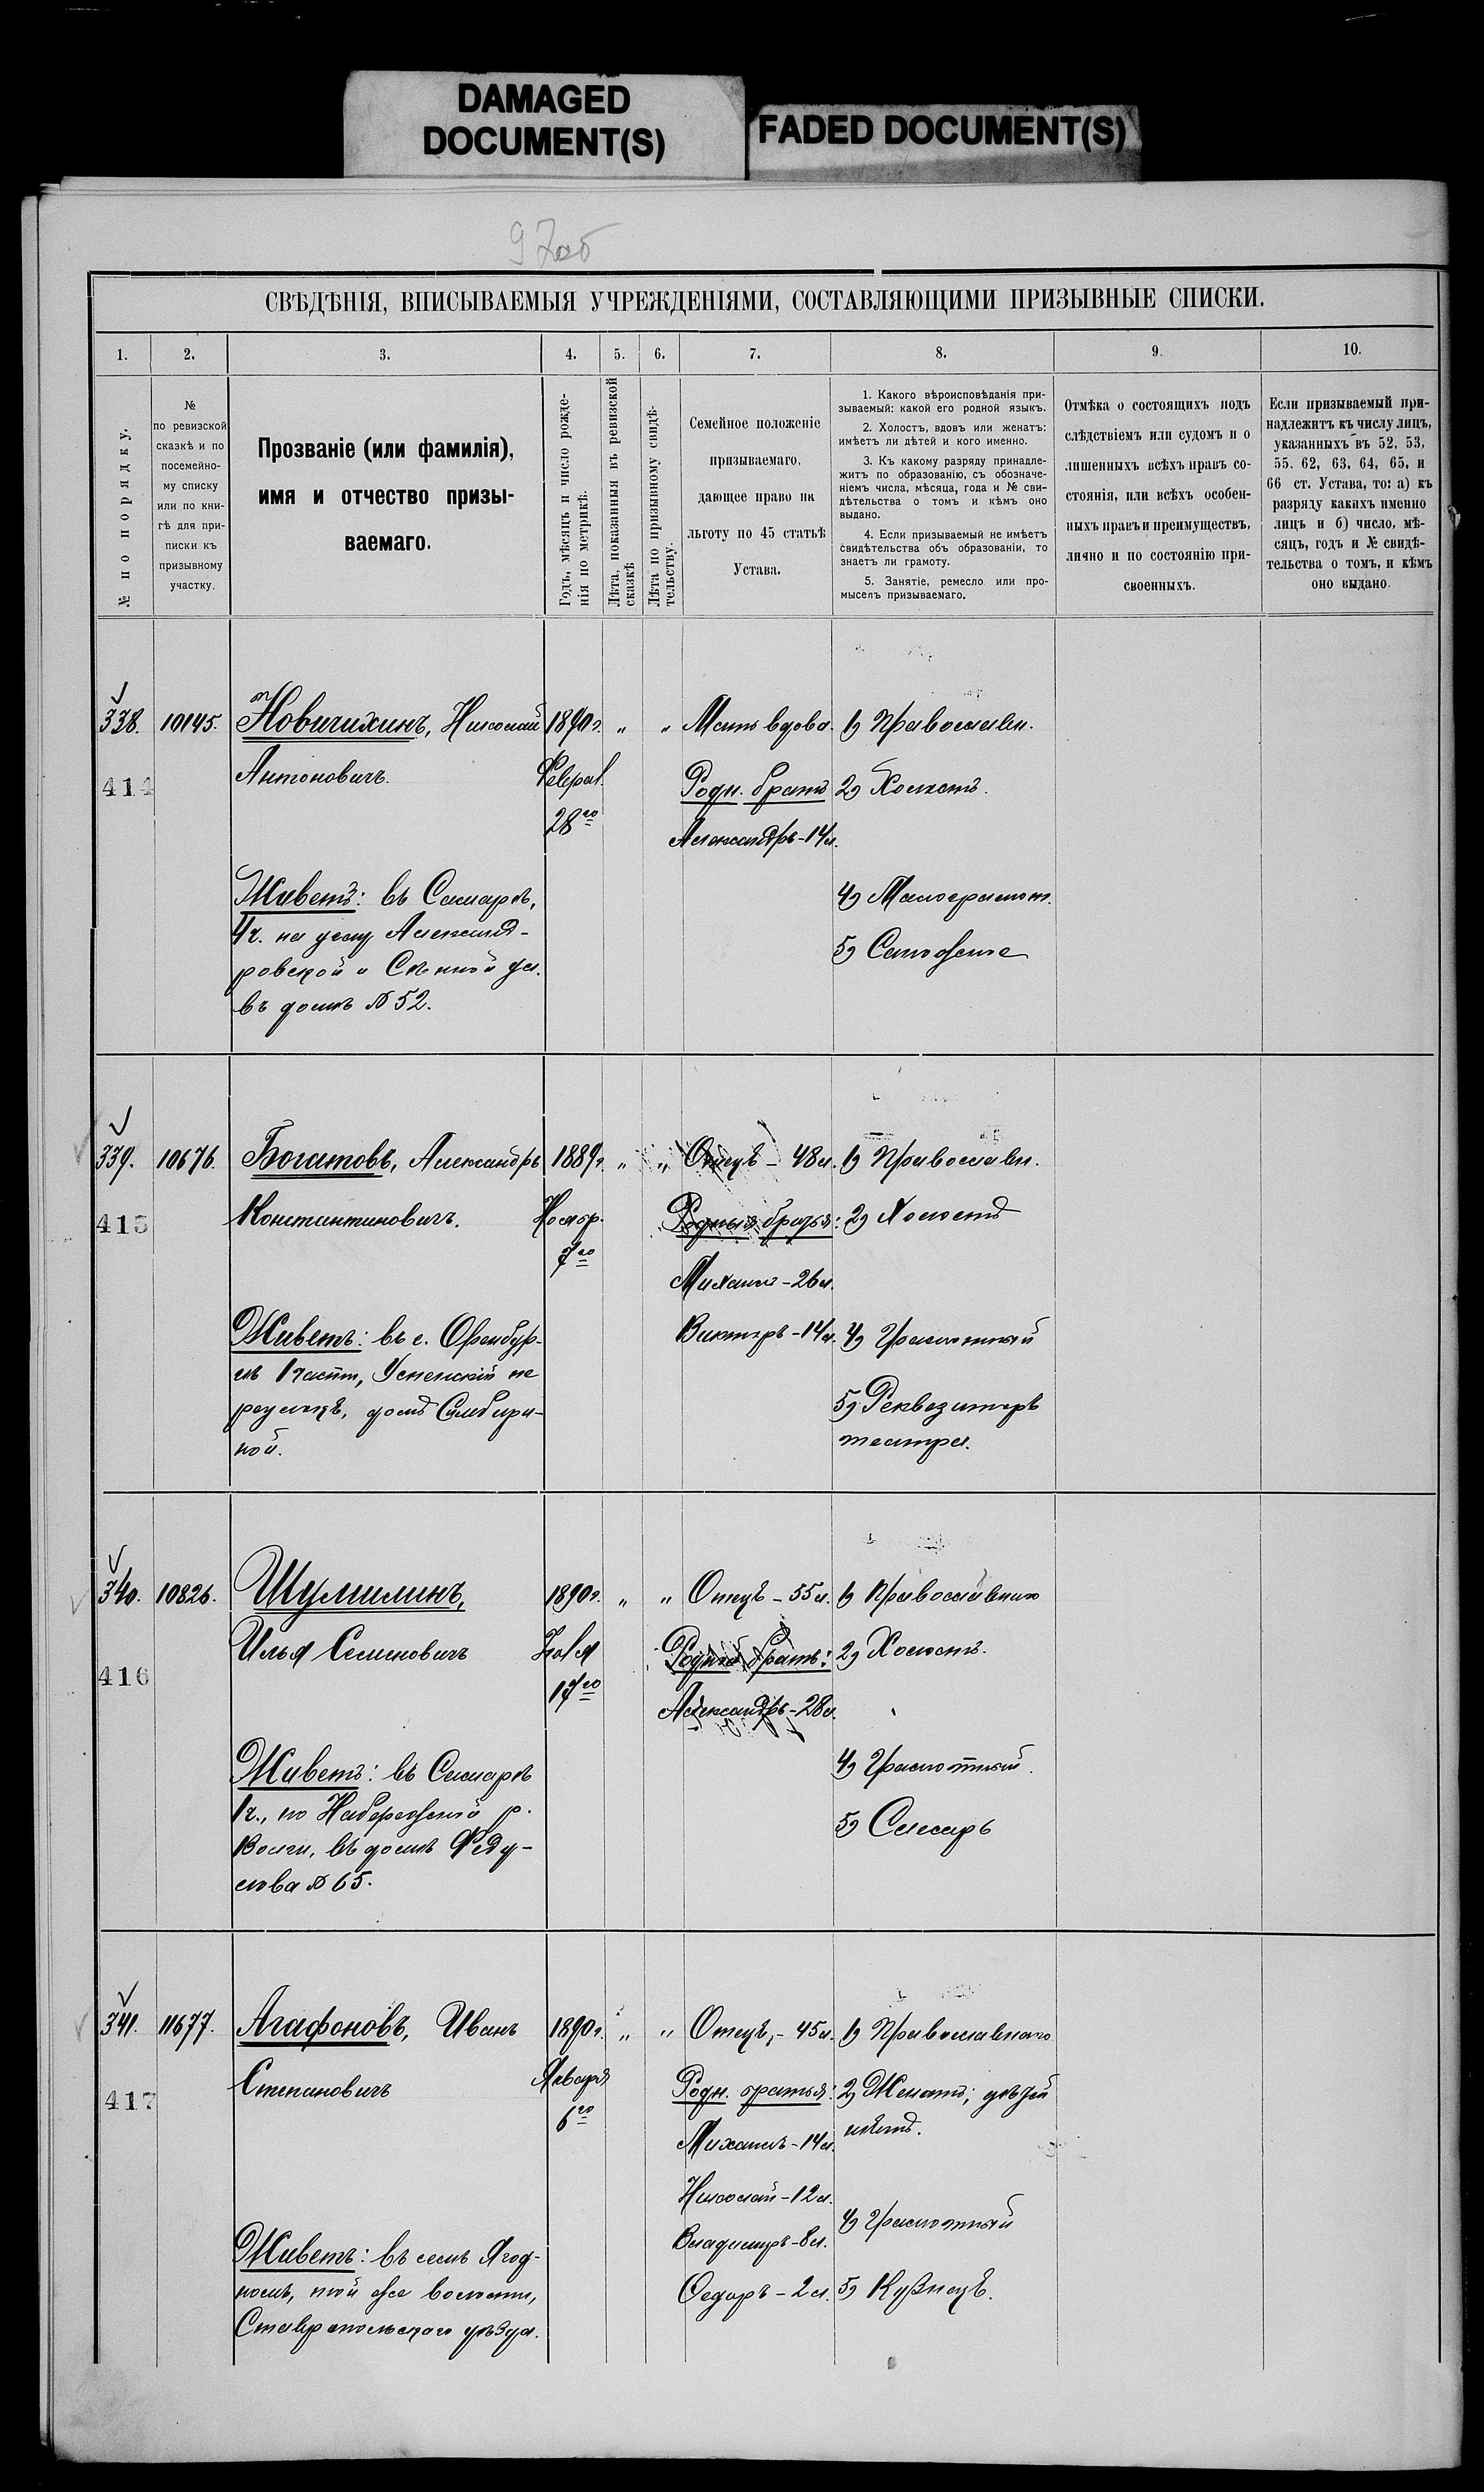 DAMAGED
DOCUMENT(S)
FADED DOCUMENT(S)
97об
СВѢДѢНІЯ, ВПИСЫВАЕМЫЯ УЧРЕЖДЕНІЯМИ, СОСТАВЛЯЮЩИМИ ПРИЗЫВНЫЕ СПИСКИ.
1. 2. 3. 4. 5. 6. 7. 8. 9. 10.
№ по порядку.
№
по ревизской
сказкѣ и по
посемейно-
му списку
или по кни-
гѣ для при-
писки къ
призывному
участку.
Прозваніе (или фамилія),
имя и отчество призы-
ваемаго.
Годъ, мѣсяцъ и число рожде-
нія по метрикѣ.
Лѣта, показанныя въ ревизской
сказкѣ
Лѣта по призывному свидѣ-
тельству.
Семейное положеніе
призываемаго,
дающее право на
льготу по 45 статьѣ
Устава.
1. Какого вѣроисповѣданія при-
зываемый: какой его родной языкъ.
2. Холостъ, вдовъ или женатъ:
имѣетъ ли дѣтей и кого именно.
3. Къ какому разряду принадле-
житъ по образованію, съ обозначе-
ніемъ числа, мѣсяца, года и № сви-
дѣтельства о томъ и кѣмъ оно
выдано.
4. Если призываемый не имѣетъ
свидѣтельства объ образованіи, то
знаетъ ли грамоту.
5. Занятіе, ремесло или про-
мыселъ призываемаго.
Отмѣка о состоящихъ подъ
слѣдствіемъ или судомъ и о
лишенныхъ всѣхъ правъ со-
стоянія, или всѣхъ особен-
ныхъ правъ и преимуществъ,
лично и по состоянію при-
своенныхъ.
Если призываемый при-
надлежитъ къ числу лицъ,
указанныхъ въ 52, 53,
55, 62, 63, 64, 65, и
66 ст. Устава, то: а) къ
разряду какихъ именно
лицъ и б) число, мѣ-
сяцъ, годъ и № свидѣ-
тельства о томъ, и кѣмъ
оно выдано.
338. 10145. Новичихинъ, Николай 1890г. „ „ Мать вдова. 1) Православн.
414 Антоновичъ. Феврал. Родн. братъ 2) Холостъ.
28го Александръ-14л.
Живетъ: въ Самарѣ, 4) Малограмотн.
4ч. на углу Александ-
ровской и Сѣнной ул. 5)
въ домѣ № 52.
339. 10676. Богатовъ, Александръ 1889г. „ „ Отецъ - 48л. 1) Православн.
415 Константиновичъ. Ноябр. Родные братья: 2) Холостъ
7го
Михаилъ-26л.
Живетъ: въ г. Оренбур- Викторъ-14л. 4) Грамотный
гѣ 1 части, Успенскій пе
реулокъ, домъ Симбири- 5) Реквизиторъ
ной. театра.
340. 10826. Шумилинъ, 1890г. „ „ Отецъ - 55л. 1) Православнаго
416 Илья Семеновичъ Іюля Родной братъ: 2) Холостъ.
17го Александръ-28л.
Живетъ: въ Самарѣ 4) Грамотный.
1ч., по Набережной р.
Волги, въ домѣ Феду- 5) Слесарь
лова № 65.
341. 11677. Агафоновъ, Иванъ 1890г. „ „ Отецъ, - 45л. 1) Православнаго
417 Степановичъ Января Родн. братья: 2) Женатъ; дѣтей
6го Михаилъ-14л. нѣтъ.
Николай-12л.
4) Грамотный
Живетъ: въ селѣ Ягод- Владимиръ-8л.
номъ, той же волости, Федоръ-2л. 5) Кузнецъ.
Ставропольскаго уѣзда.